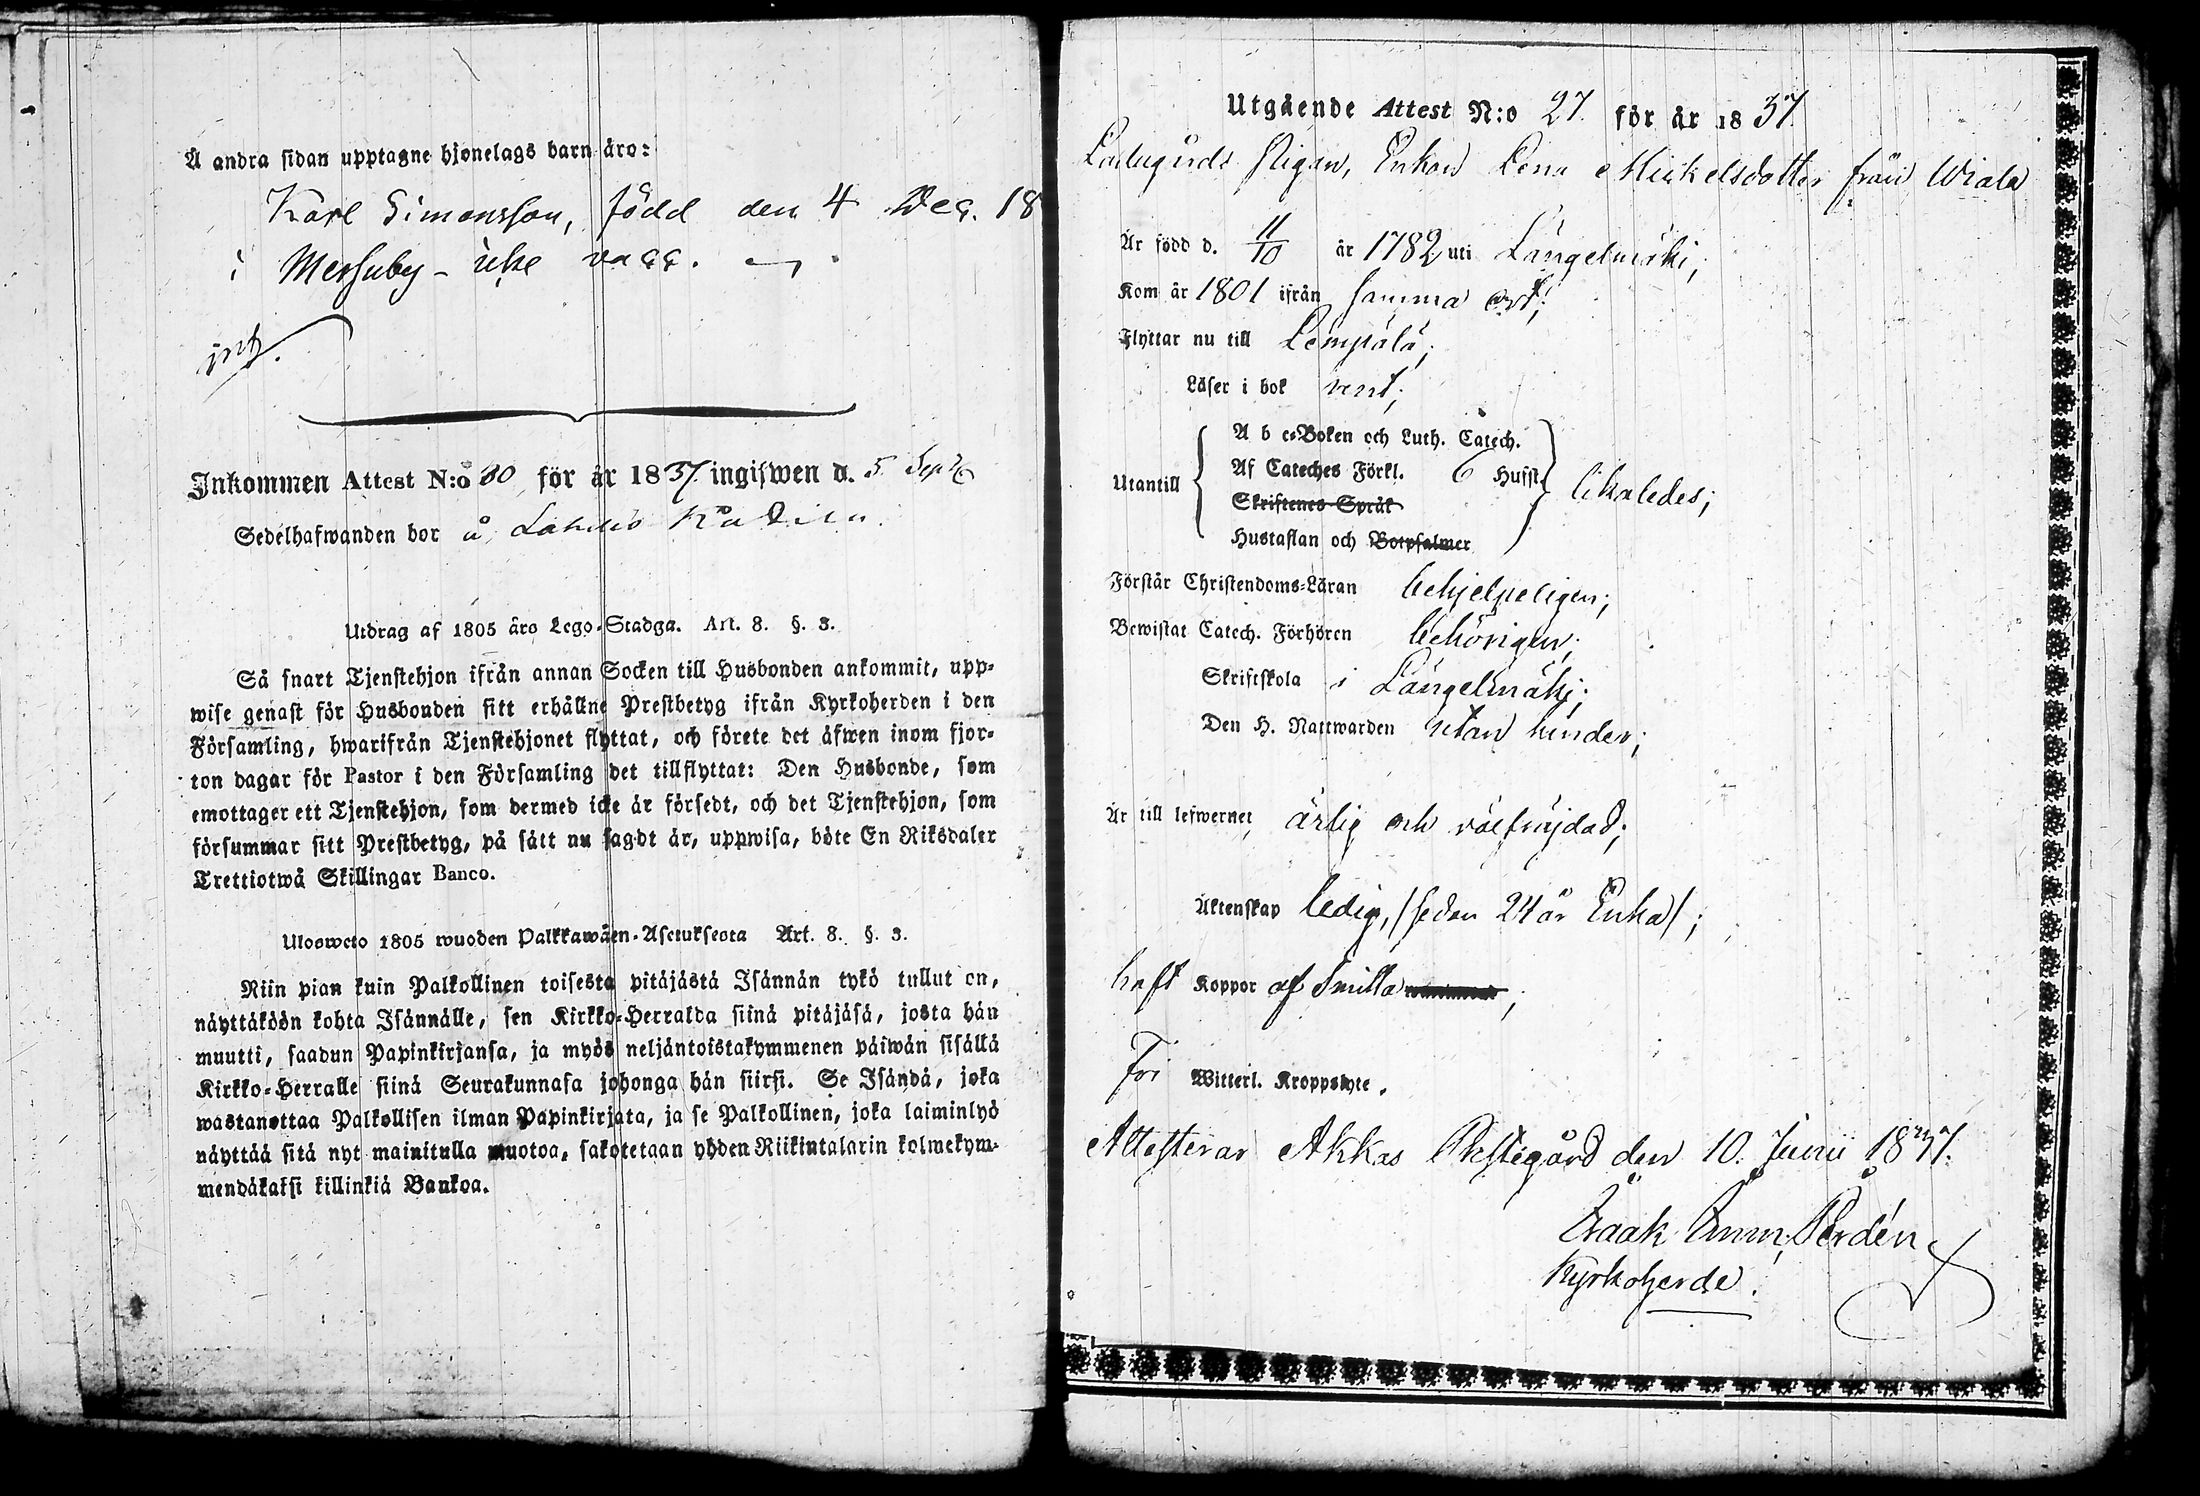 Å andra sidan upptagne hjonelags barn äro:
Karl Simonsson, född den 4 Dec. 18
i Mersuby - icke vacc.
Inkommen Attest N:o 30 för år 1837 ingifwen d. 5 Sept
Sedelhafwanden bor å
Utdrag af 1805 års Lego-Stadga. Art. 8. §. 3.
Så snart Tjenstehjon ifrån annan Socken till Husbonden ankommit, upp-
wise genast för Husbonden sitt erhållne Prestbetyg ifrån Kyrkoherden i den
Församling, hwarifrån Tjenstehjonet flyttat, och förete det äfwen inom fjor-
ton dagar för Pastor i den Församling det tillflyttat: Den Husbonde, som
emottager ett Tjenstehjon, som dermed icke är försedt, och det Tjenstehjon, som
försummar sitt Prestbetyg, på sätt nu sagdt är, uppwisa, böte En Riksdaler
Trettiotwå Skillingar Banco.
Ulosweto 1805 wuoden Palkkawäen-Asetuksesta Art. 8. §. 3.
Niin pian kuin Palkollinen toisesta pitäjästä Isännän tykö tullut on,
näyttäköön kohta Isännälle, sen Kirkko-Herralda siinä pitäjäsä, josta hän
muutti, saadun Papinkirjansa, ja myös neljäntoistakymmenen päiwän sisällä
Kirkko-Herralle siinä Seurakunnasa johonga hän siirsi. Se Isändä, joka
wastanottaa Palkollisen ilman Papinkirjata, ja se Palkollinen, joka laiminlyö
näyttää sitä nyt mainitulla muotoa, sakotetaan yhden Riikintalarin kolmekym-
mendäkaksi killinkiä Bankoa.
Utgående Attest N:o 27. för år 1837.
Ladugårds Pigan, Enkan Lena Mickelsdotter från Wiala
Är född d. 11/10 år 1782 uti Längelmäki;
Kom år 1801 ifrån samma ort;
Flyttar nu till Lempälä;
Läser i bok rent;
Utantill
A b c-Boken och Luth. Catech.
Af Cateches Förkl. 6 Hufst.
Skriftenes Språk
Hustaflan och Botpsalmer
likaledes;
Förstår Christendoms-Läran behjelpeligen;
Bewistat Catech. Förhören behörigen;
Skriftskola i Längelmäki;
Den H. Nattwarden utan hinder;
Är till lefwernet ärlig och välfrejdad;
Äktenskap ledig, /sedan 24 år Enka/;
haft Koppor af Smitta;
Fri Witterl. Kroppslyte.
Attesterar Akkas Prestegård den 10. Junii 1837.
Isaak Emm. Perdén
Kyrkoherde.